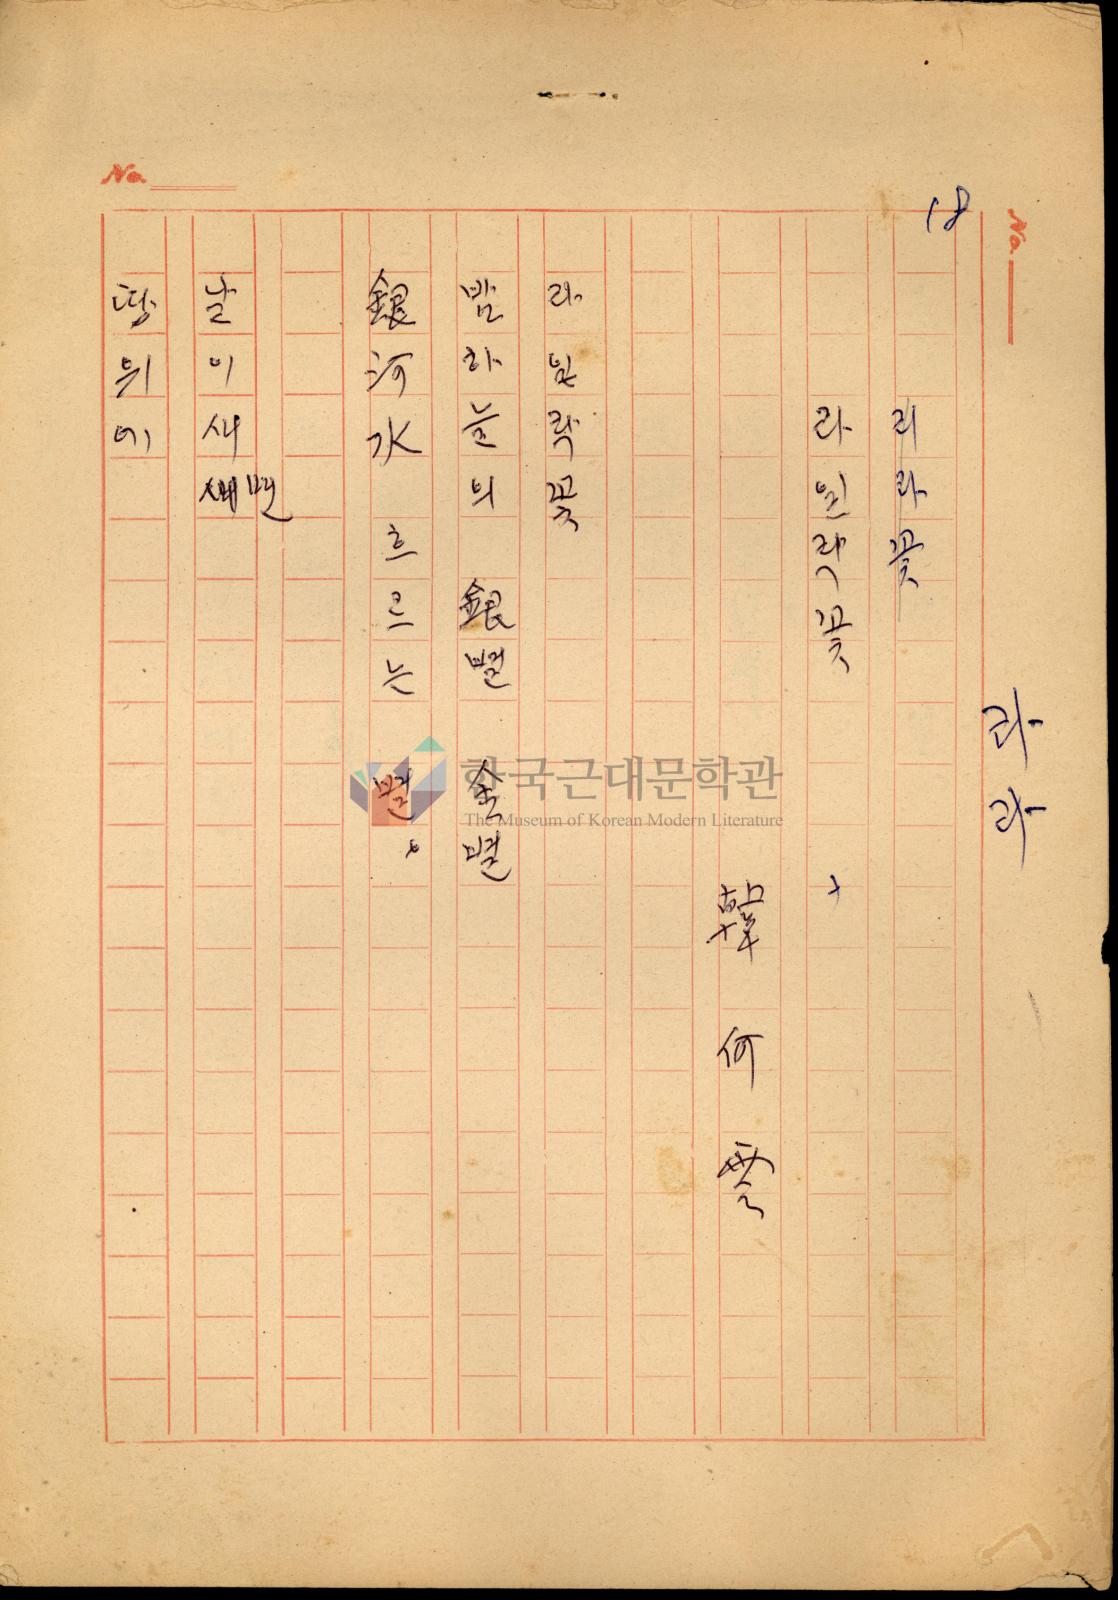 No.
No.
18
라라
리라꽃
라일락꽃
韓何雲
라일락꽃
밤하늘의 銀별 金별
銀河水 흐르는 별.
날이 새
새면
땅 위에
한국근대문학관
The Museum of Korean Modern Literature